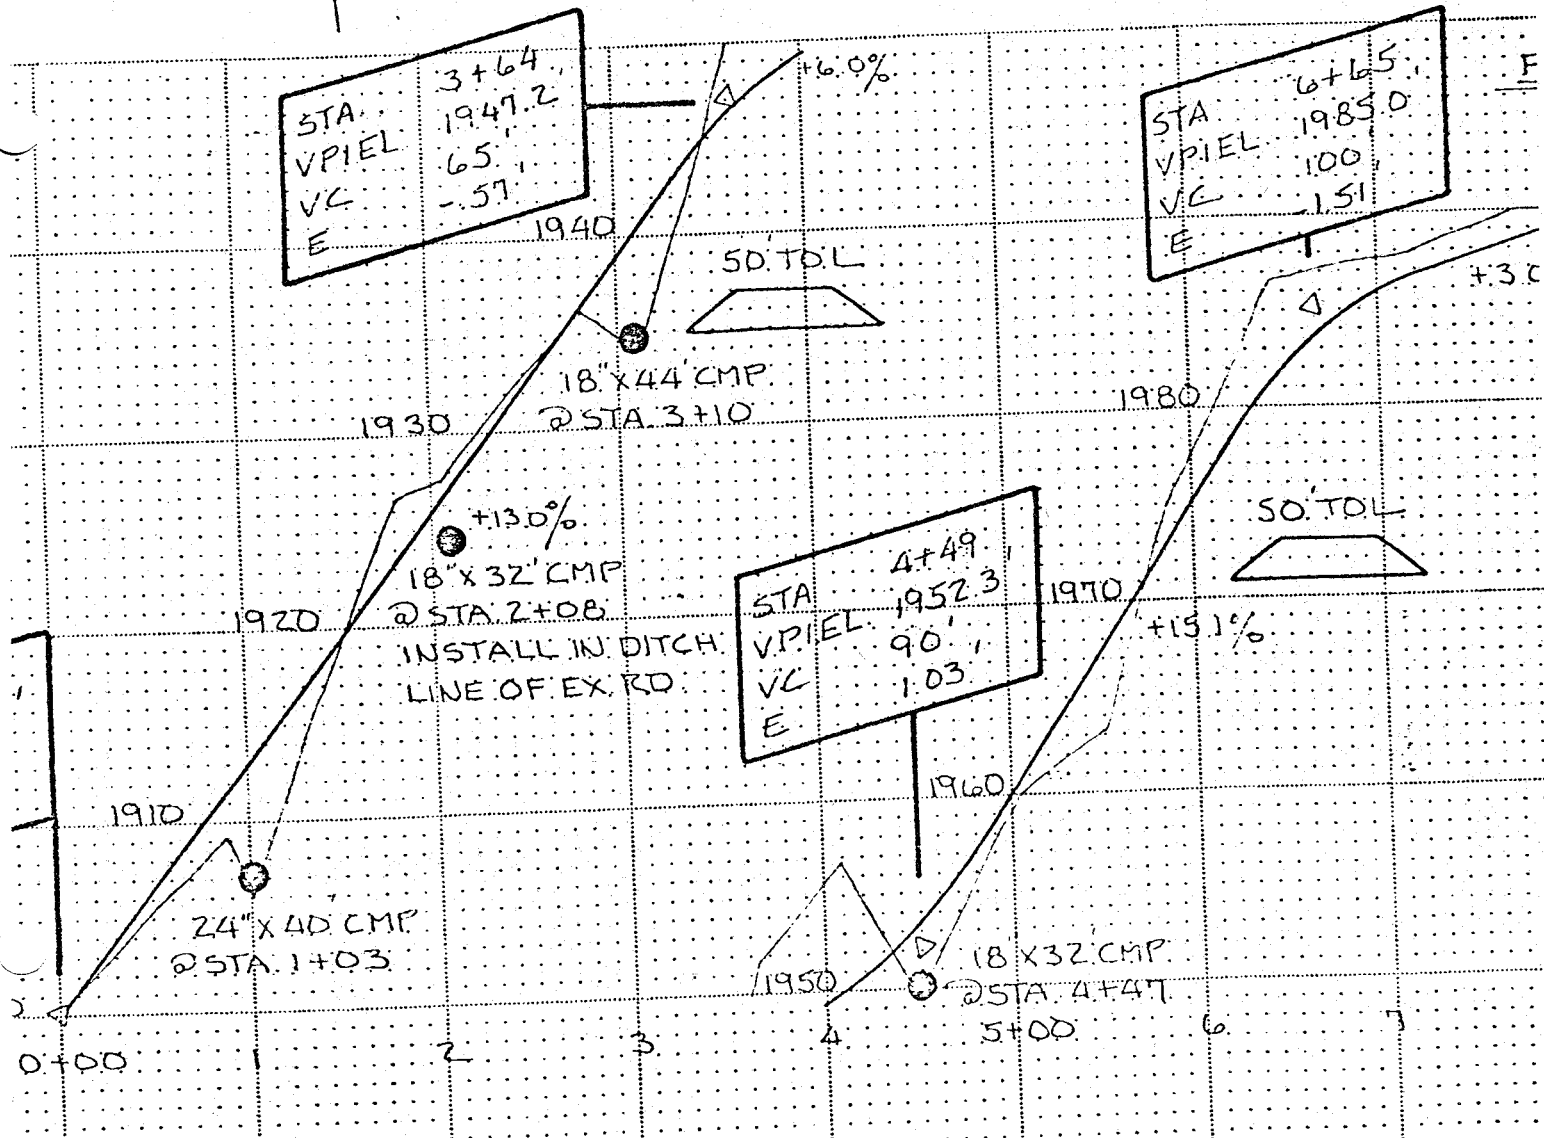 STA. 3+64
VPIEL 1947.2
VC 65'
E -.57'
+6.0%
STA 6+65
VPIEL 1985.0
VC 100'
E -1.51'
F
+3.0
1940
50' TOL
18" X 44' CMP
@ STA. 3+10
1930
1980
+13.0%
18" X 32' CMP
@ STA. 2+08
INSTALL IN DITCH
LINE OF EX. RD.
1920
STA 4+49
VPIEL. 1952.3
VC 90'
E 1.03'
50' TOL
1970
+15.1%
1910
1960
24" X 40' CMP
@ STA. 1+03
1950
18" X 32' CMP
@ STA. 4+47
0+00 1 2 3 4 5+00 6 7